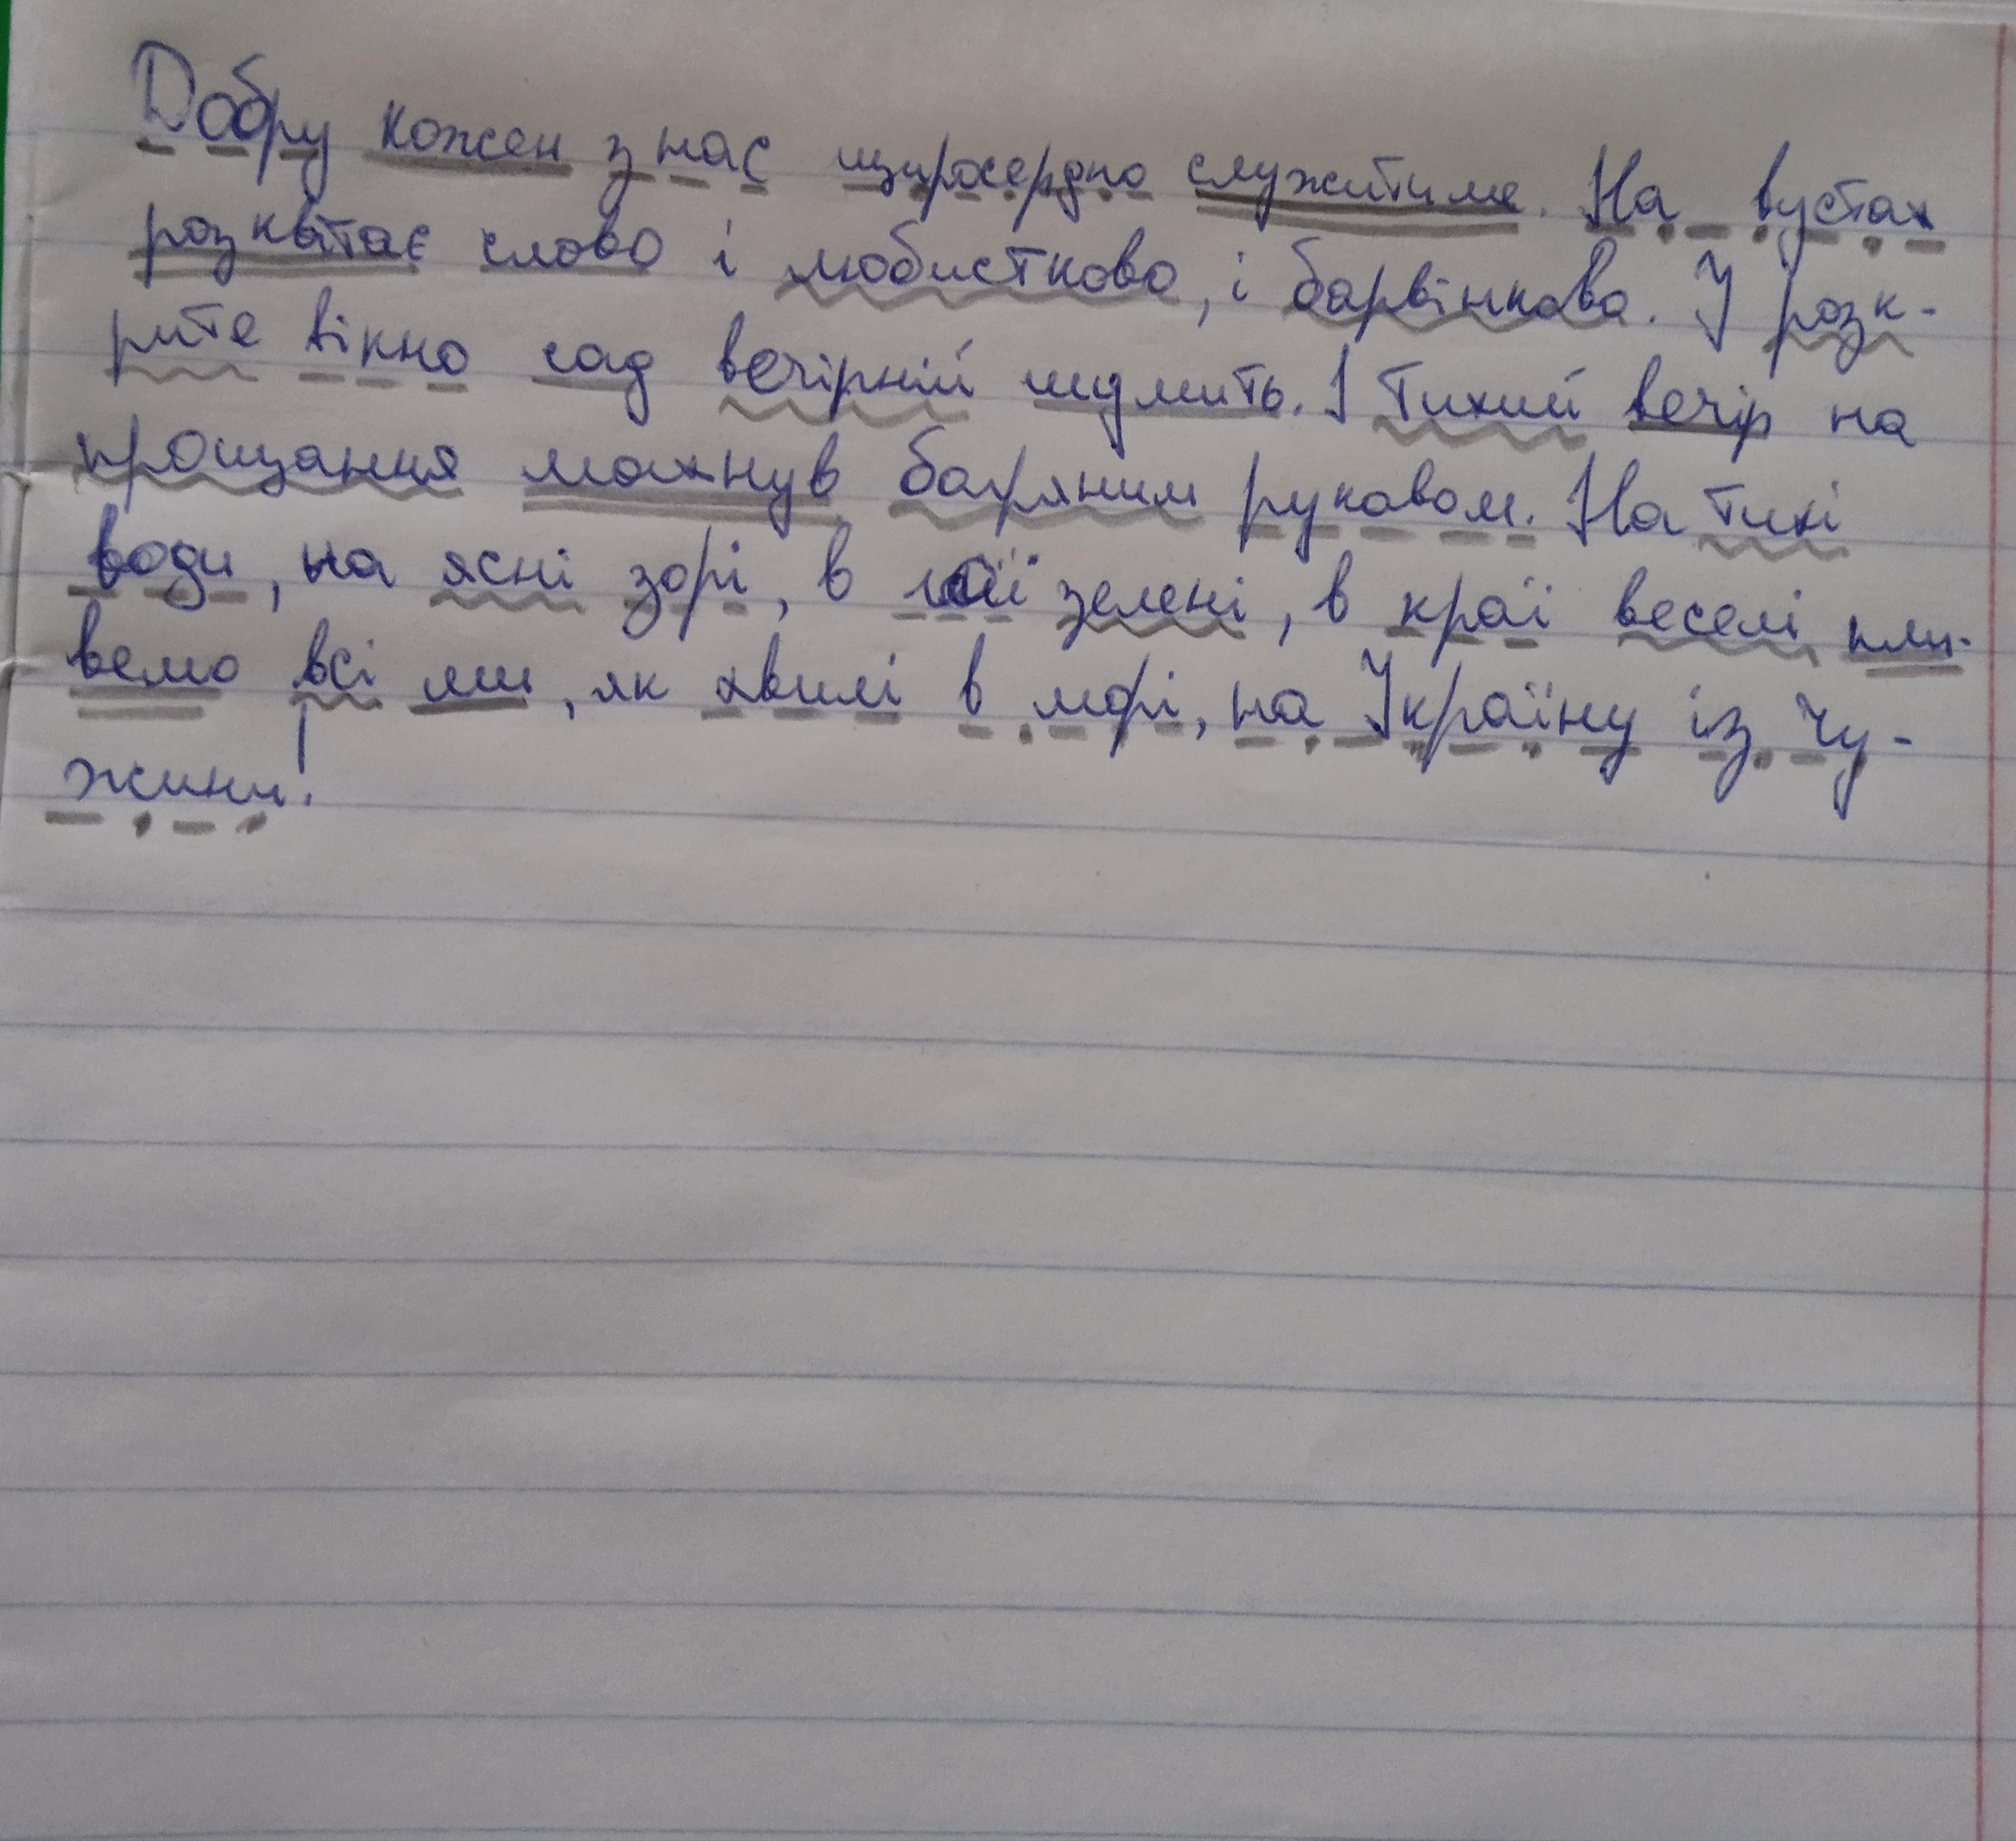 Добру кожен з нас щиросердно служитиме. На вустах
розквітає слово і любистково, і барвінково. У розк-
рите вікно сад вечірній шумить. І тихий вечір на
прощання махнув багряним рукавом. На тихі
води, на ясні зорі, в гаї зелені, в краї веселі пли-
вемо всі ми, як хвилі в морі, на Україну із чу-
жини!